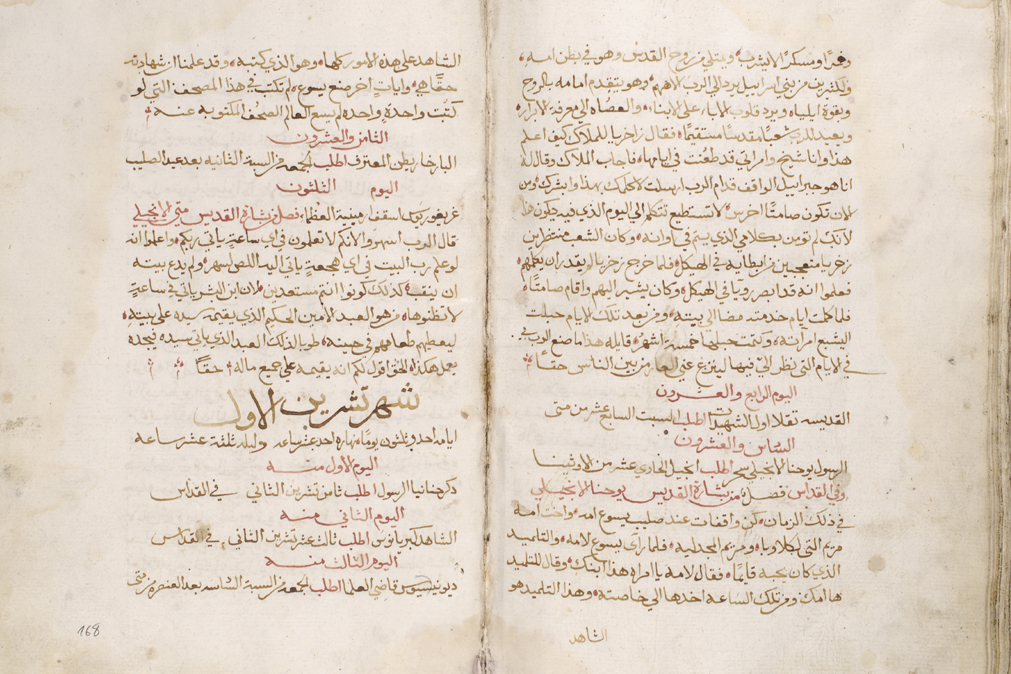 وخمرًا ومسكرًا لا يشرب ويمتلي من روح القدس وهو في بطن امه
ولكثير من بني اسراييل يرد الي الرب الاههم وهو يتقدم امامه بالروح
وبقوة ايلياء ويرد قلوب الاباء علي الابناء والعصاه الي معرفة الابرار
ويعيد للرب شعبًا مقدسا مستقيمًا فقال زاخريا للملاك كيف اعلم
هذا وانا شيخ وامراتي قد طعنت في ايامها فاجاب الملاك وقال له
انا هو جبراييل الواقف قدام الرب ارسلت لاكلمك بهذا وابشرك ومن
الان تكون صامتًا اخرس لا تستطيع تتكلم الي اليوم الذي فيه يكون هذا
لانك لم تومن بكلامي الذي يتم في اوانه وكان الشعب منتظرين
زخريا متعجبين من ابطايه في الهيكل فلما خرج زخريا لم يقدر ان يكلمهم
فعلموا انه قد ابصر رويا في الهيكل وكان يشير اليهم واقام صامتًا
فلما كملت ايام خدمته مضا الي بيته ومن بعد تلك الايام حبلت
اليشبع امراته وكتمت حبلها خمسة اشهر قايله هذا ما صنع الرب بي
في الايام التي نظر الي فيها لينزع عني العار من بين الناس حقًا
اليوم الرابع والعشرون
القديسه تقلا اولي الشهيدات اطلب السبت السابع عشر من متي
السادس والعشرون
الرسول يوحنا الانجيلي سحر اطلب انجيل الحادي عشر من الاوثينا
وفي القداس فصل من بشارة القديس يوحنا الانجيلي
في ذلك الزمان كن واقفات عند صليب يسوع امه واخت امه
مريم التي لكلاوبا ومريم المجدلية فلما رآي يسوع لامه والتلميد
الذي كان يحبه قايمًا فقال لامه يا امراه هذا ابنك وقال للتلميد
ها امك ومن تلك الساعه اخدها الي خاصته وهذا التلميد هو
الشاهد
الشاهد علي هذه الامور كلها وهو الذي كتبه وقد علمنا ان شهادته
حقًا هي وايات اخر صنع يسوع لم تكتب في هذا المصحف التي لو
كتبت واحدة واحده لم يسع العالم الصحف المكتوبه عنه
الثامن والعشرون
البار خاريطن المعترف اطلب الجمعه من السبة الثانيه بعد عيد الصليب
اليوم الثلثون
غريغوريوس اسقف ارمينية العظماء فصل من بشارة القديس متي الانجيلي
قال الرب اسهروا لانكم لا تعلمون في اي ساعةٍ ياتي ربكم واعلموا انه
لو علم رب البيت في اي هجعةٍ ياتي اليه اللص لسهر ولم يدع بيته
ان ينقب كذلك كونوا انتم مستعدين لان ابن البشر ياتي في ساعةٍ
لا تظنوها من هو العبد الامين الحكيم الذي يقيمه سيده علي بيته
ليعطيهم طعامهم في حينه طوبا لذلك العبد الذي ياتي سيده فيجده
يعمل هكذا الحق اقول لكم انه يقيمه علي جميع ماله حقًا
شهر تشرين الاول
ايامه احد وثلثون يومًا نهاره احد عشر ساعه وليله ثلثة عشر ساعه
اليوم الاول منه
ذكر حنانيا الرسول اطلب ثامن تشرين الثاني في القداس
اليوم الثاني منه
الشاهد كبريانوس اطلب ثالث عشر تشرين الثاني في القداس
اليوم الثالث منه
ديونيسيوس قاضي العلما اطلب الجمعه من السبة السادسه بعد العنصره من متي
168